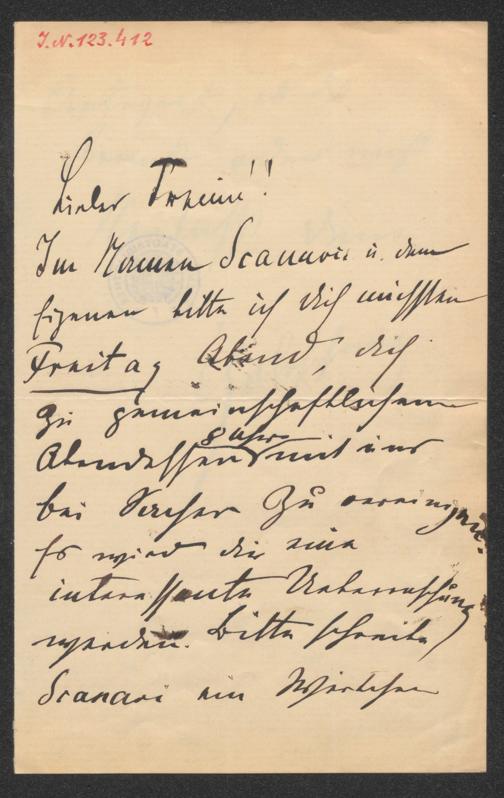 J.N. 123.412
Lieber Freund!!
Im Namen Scanavi u. dem
Eigenen bitte ich dich nächsten
Freitag Abend, dich
zu gemeinschaftlichem
8 Uhr
Abendessen mit uns
bei Sacher zu vereinigen.
Es wird dir eine
interessante Ueberraschung
werden. Bitte schreibe
Scanavi ein Wörtchen